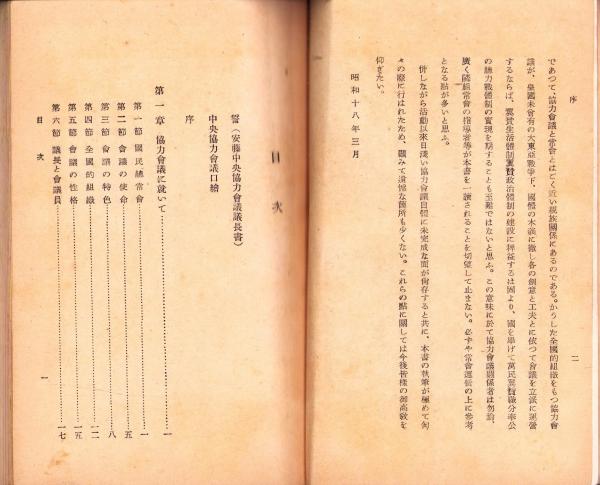 序
二
であつて、協力會議と常會とはごく近い親族關係にあるのである。かうした全國的組織をもつ協力會
議が、皇國未曾有の大東亞戰爭下、國體の本義に徹し各の創意と工夫とに依つて會議を立派に運營
するならば、翼贊生活體制翼贊政治體制の建設に裨益するは固より、國を擧げて萬民翼贊職分奉公
の總力戰體制の實現を期することも至難ではないと思ふ。この意味に於て協力會議關係者は勿論、
廣く隣組常會の指導者等が本書を一讀されることを切望して止まない。必ずや常會運營の上に參考
となる點が多いと思ふ。
併しながら活動以來日淺い協力會議自體に未完成な面が尙存すると共に、本書の執筆が極めて匆
々の際に行はれたため、顧みて遺憾な箇所も少くない。これらの點に關しては今後皆樣の御高敎を
仰ぎたい。
昭和十八年三月
目次
誓（安藤中央協力會議議長書）
中央協力會議口繪
序
第一章 協力會議に就いて……一
第一節 國民總常會……一
第二節 會議の使命……五
第三節 會議の特色……八
第四節 全國的組織……一二
第五節 會議の性格……一五
第六節 議長と會議員……一七
目次
一